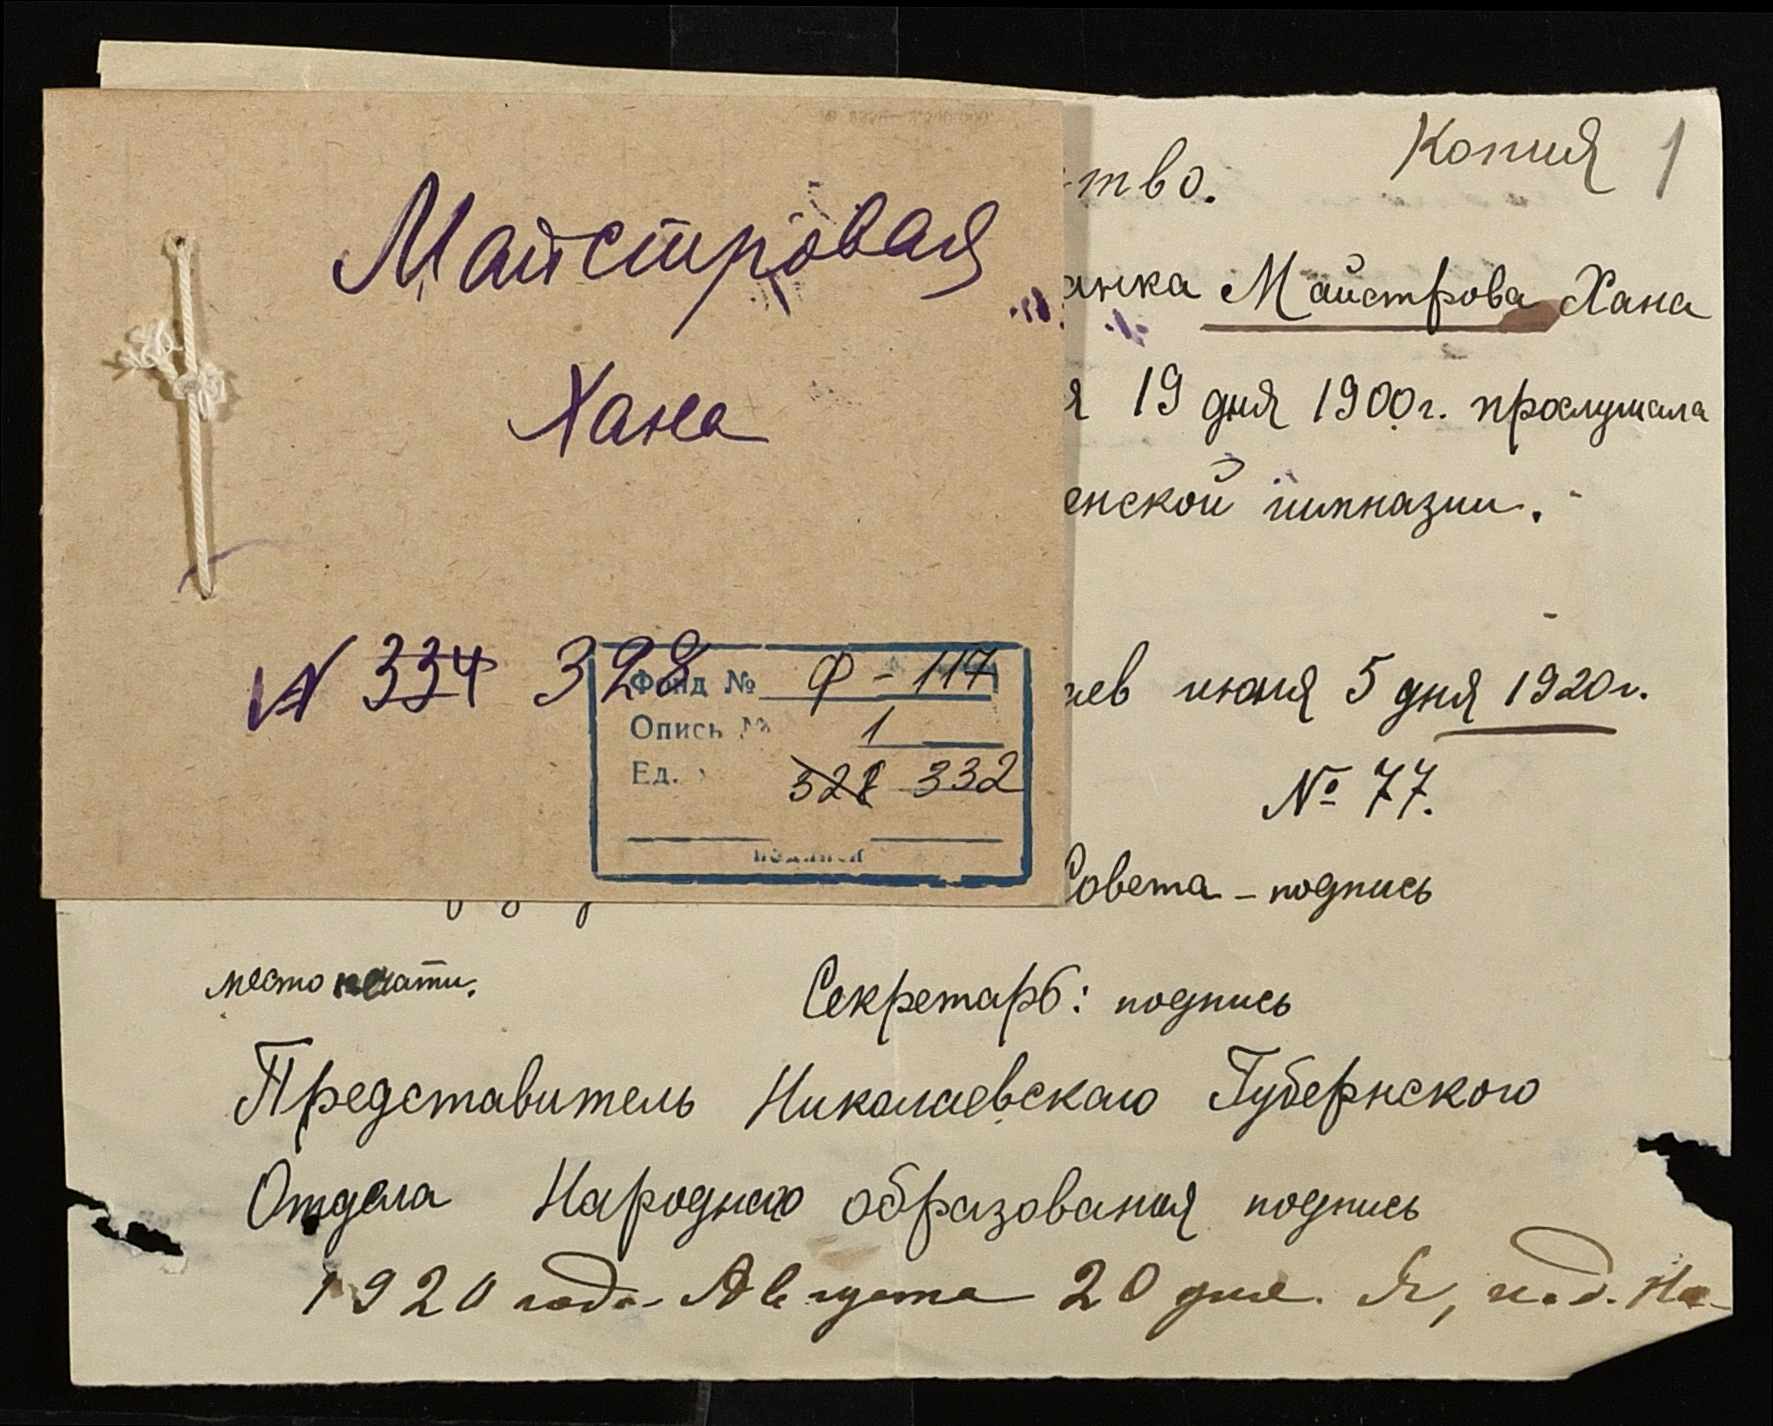 Майстровая
Хана
№ 334 328
Фонд № Ф - 117
Опись № 1
Ед. 328 332
Копия 1
тво.
анка Майстрова Хана
я 19 дня 1900г. прослушала
енской гимназии.
аев июня 5 дня 1920г.
№ 77.
Совета - подпись
место печати.
Секретарь: подпись
Представитель Николаевскаго Губернского
Отдела Народнаго образования подпись
1920 года Августа 20 дня. Я, под. На-